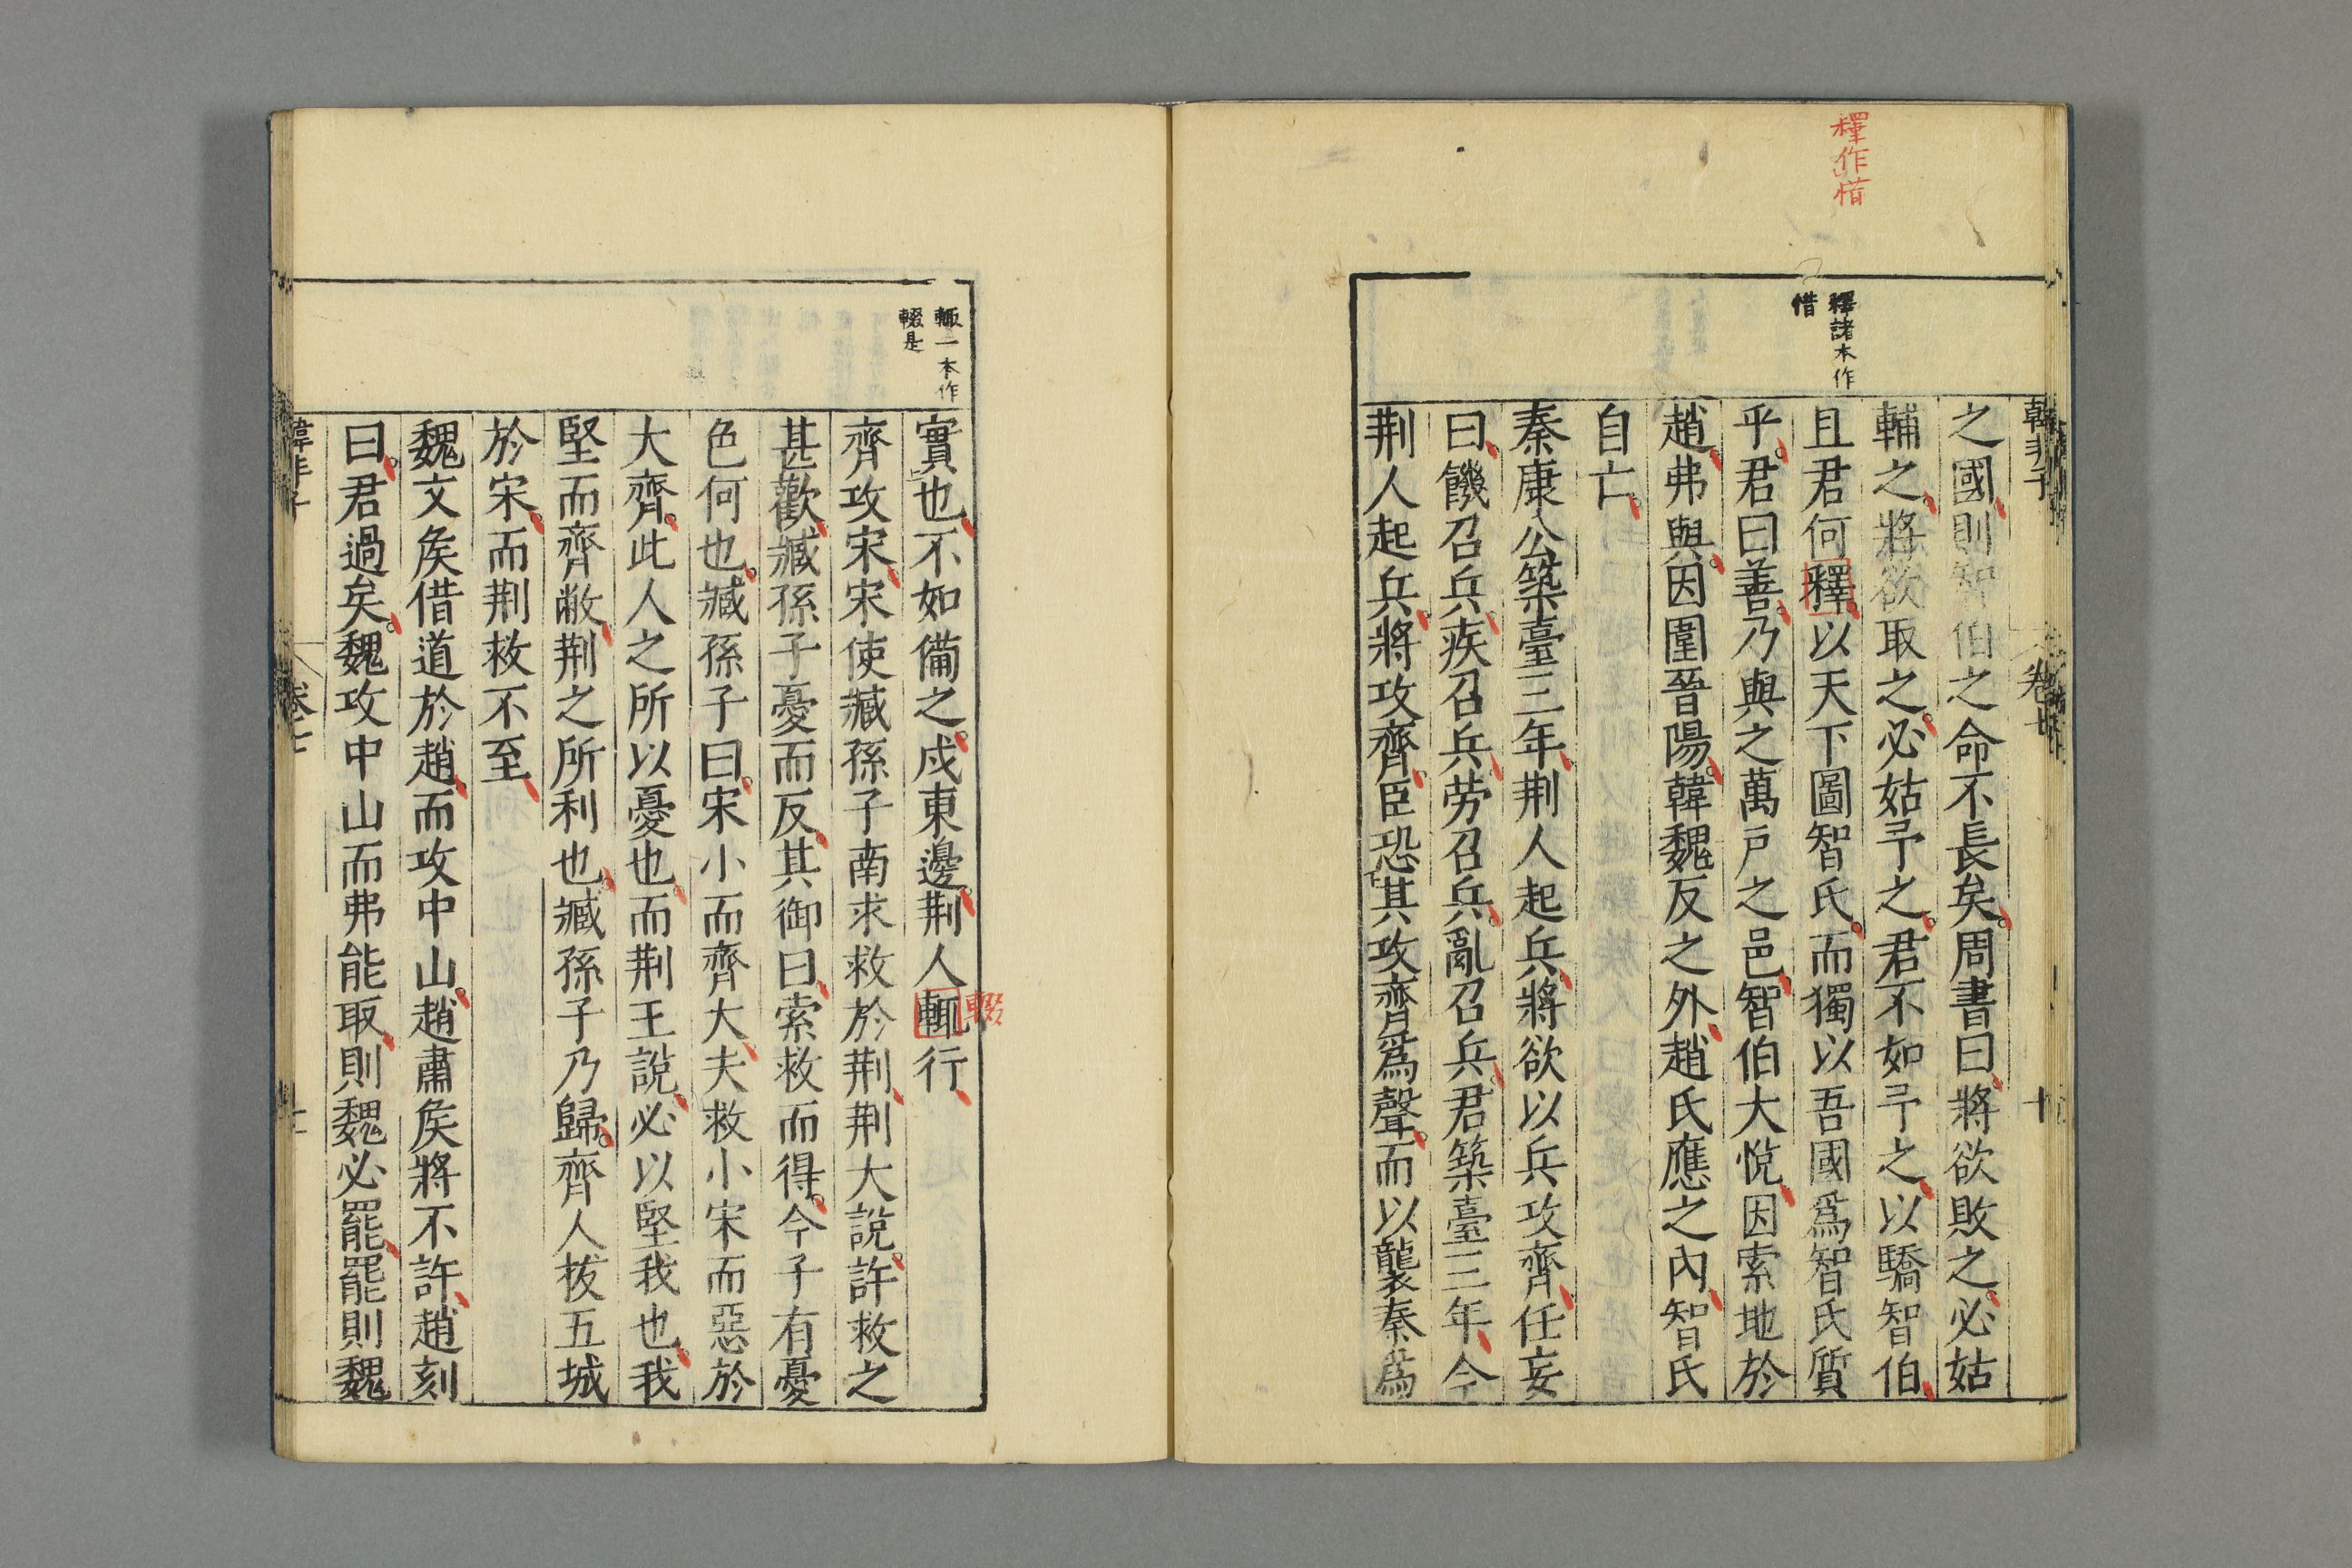 釋作惜
釋諸本作
惜
韓非子 卷七 十
之國則智伯之命不長矣周書曰將欲敗之必姑
輔之將欲取之必姑予之君不如予之以驕智伯
且君何釋以天下圖智氏而獨以吾國爲智氏質
乎君曰善乃與之萬戶之邑智伯大悅因索地於
趙弗與因圍晉陽韓魏反之外趙氏應之內智氏
自亡
秦康公築臺三年荆人起兵將欲以兵攻齊任妄
曰饑召兵疾召兵劳召兵亂召兵君築臺三年今
荆人起兵將攻齊臣恐其攻齊爲聲而以襲秦爲
輙一本作
輟是
實也不如備之戍東邊荆人輙行
輟
齊攻宋宋使臧孫子南求救於荆荆大說許救之
甚歡臧孫子憂而反其御曰索救而得今子有憂
色何也臧孫子曰宋小而齊大夫救小宋而惡於
大齊此人之所以憂也而荆王說必以堅我也我
堅而齊敝荆之所利也臧孫子乃歸齊人拔五城
於宋而荆救不至
魏文矦借道於趙而攻中山趙肅矦將不許趙刻
曰君過矣魏攻中山而弗能取則魏必罷罷則魏
韓非子 卷七